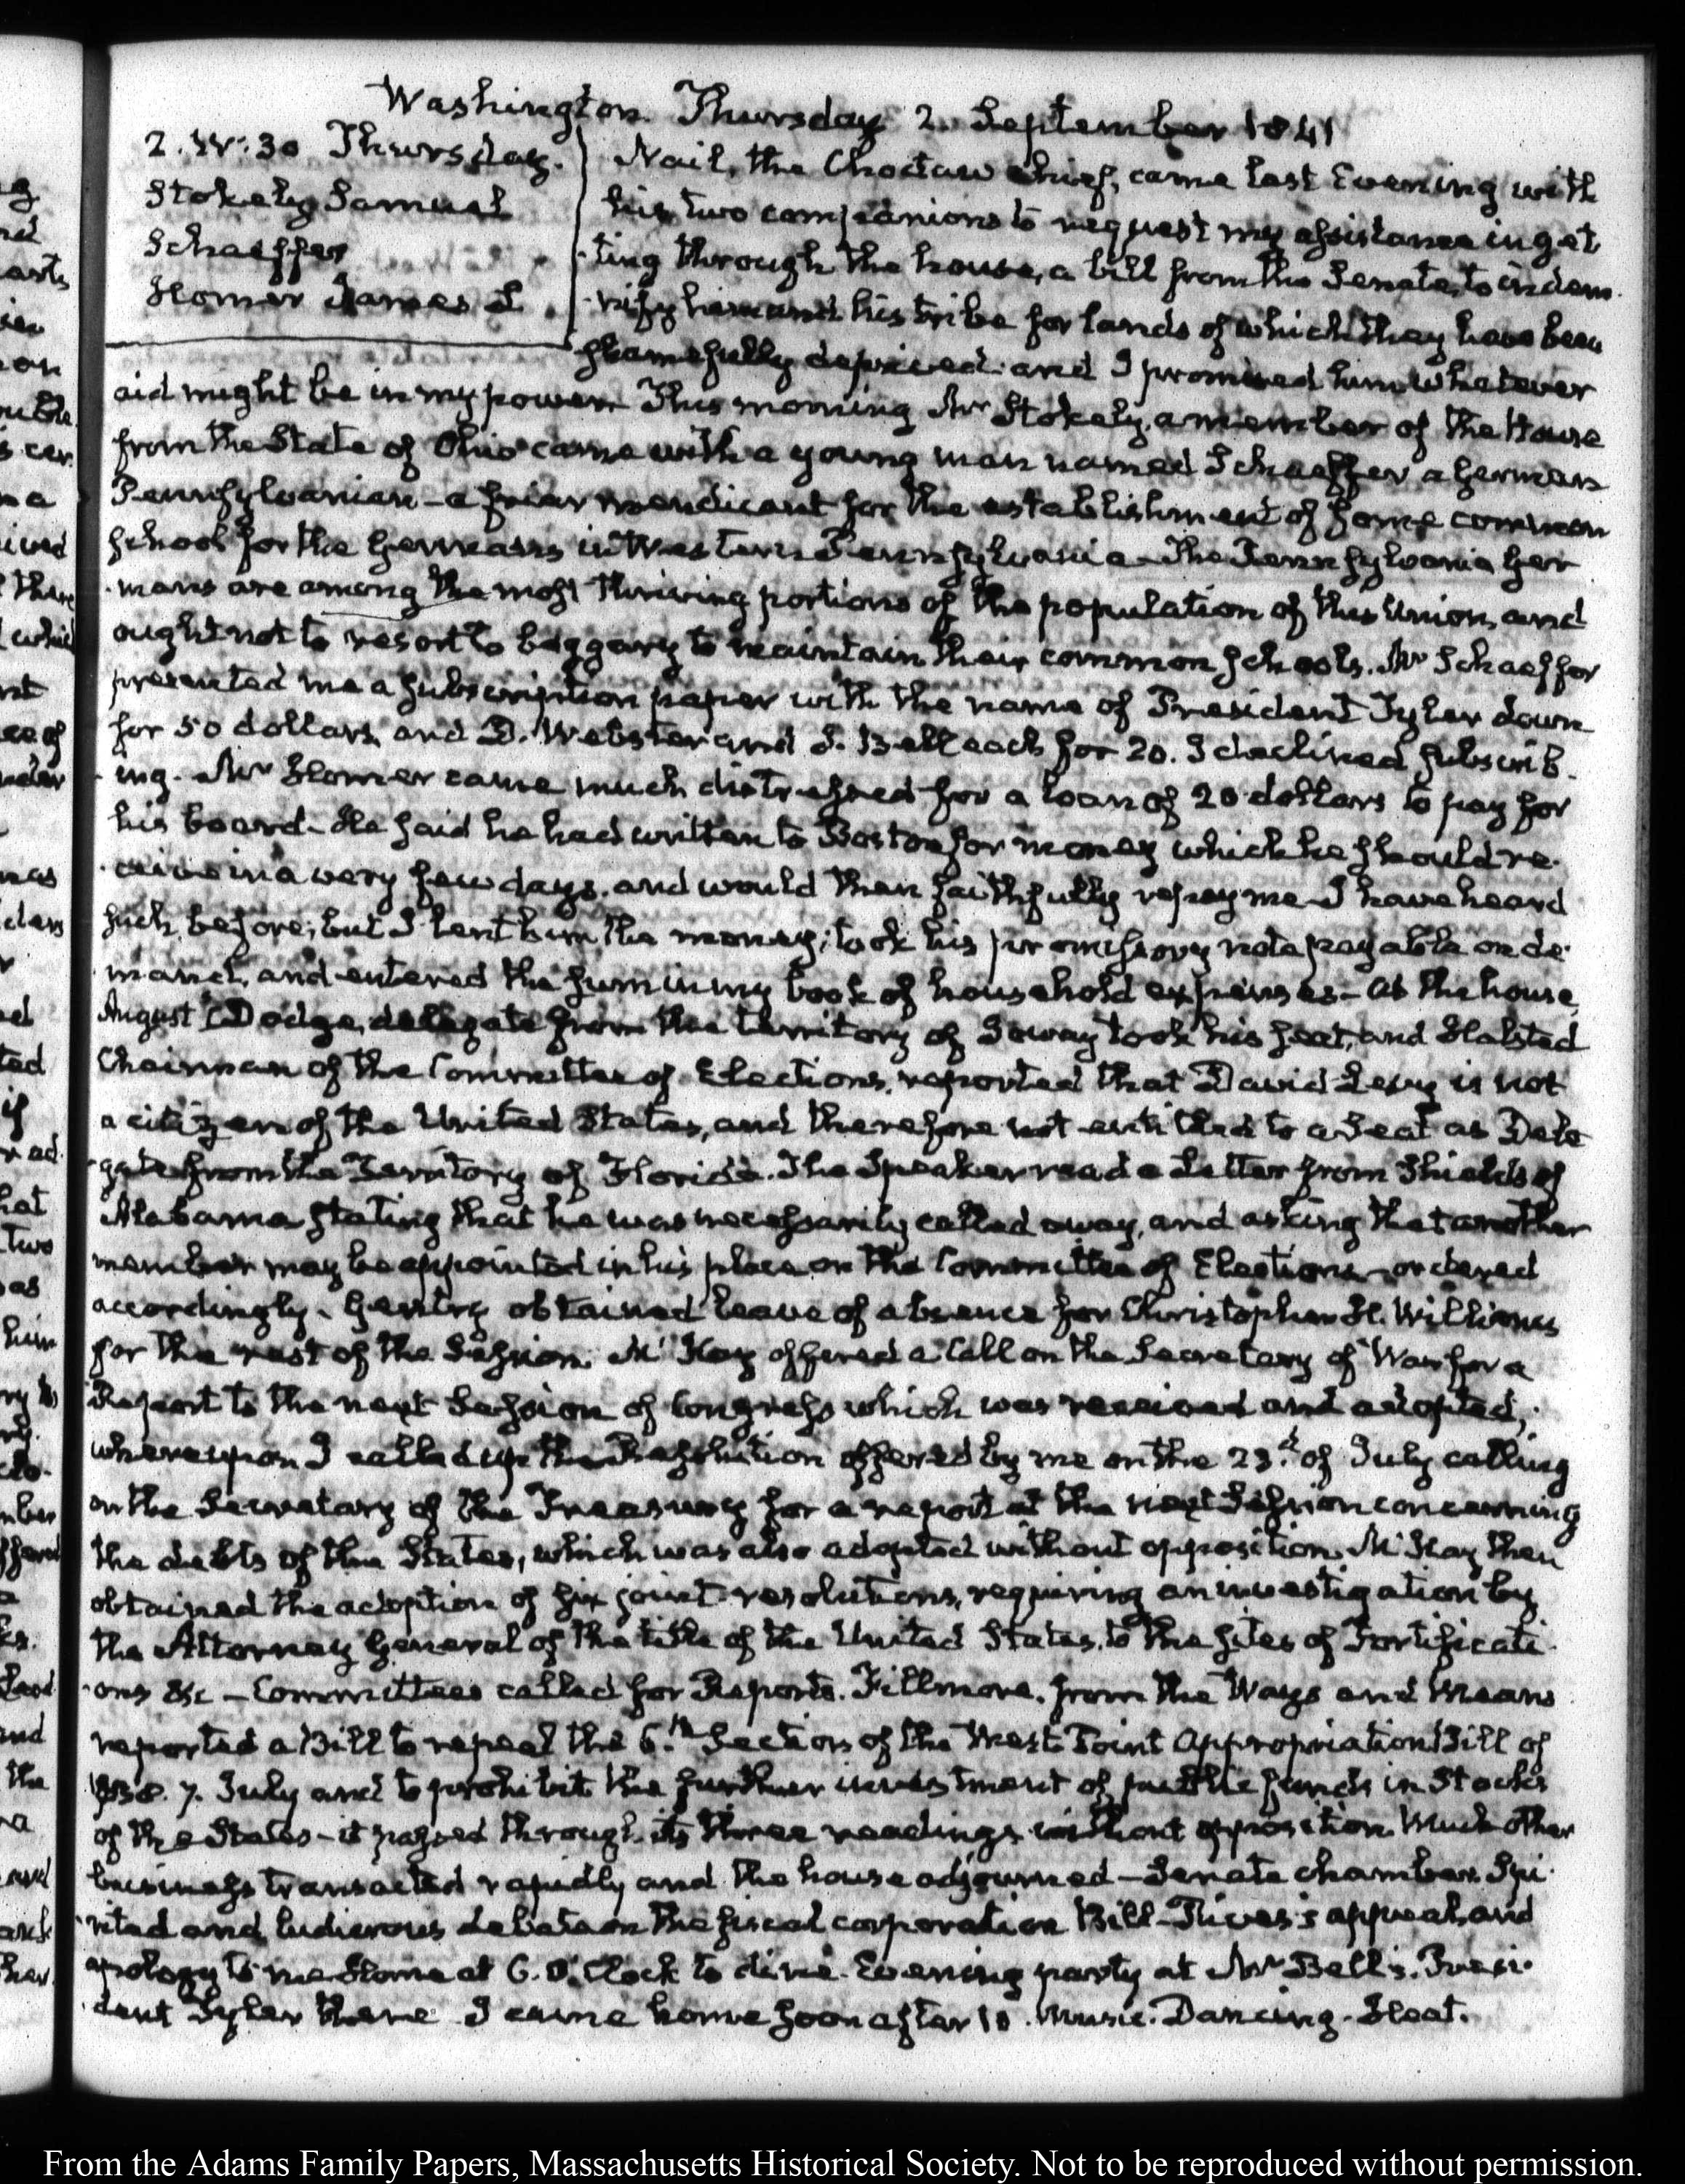 Washington. Thursday 2. September 1841
2. IV:30 Thursday.
Stokely Samuel
Schaeffer
Homer James L
Nail, the Choctaw Chief, came last Evening with
his two companions to request my assistance in get
ting through the house, a bill from the Senate, to indem
nify him and his tribe for lands of which they have been
shamefully deprived: and I promised him whatever
aid might be in my power. This morning Mr Stokely, a member of the House
from the State of Ohio came with a young man named Schaeffer a German
Pennsylvanian—a friar mendicant for the establishment of some common
school for the Germans in Western Pennsylvania—The Pennsylvania Ger
mans are among the most thriving portions of the population of this Union, and
ought not to resort to beggary to maintain their common schools. Mr Schaeffer
presented me a subscription paper with the name of President Tyler down
for 50 dollars, and D. Webster and J. Bell each for 20. I declined subscrib
ing. Mr Homer came much distressed for a loan of 20 dollars to pay for
his board—He said he had written to Boston for money which he should re
ceive in a very few days, and would then faithfully repay me—I have heard
such before; but I lent him the money; took his promissory note payable on de
mand, and entered the sum in my book of household expenses—At the house,
August C Dodge, delegate from the territory of Ioway took his seat, and Halsted
Chairman of the Committee of Elections, reported that David Levy is not
a citizen of the United States, and therefore not entitled to a Seat as Dele
gate from the Territory of Florida. The Speaker read a Letter from Shields of
Alabama stating that he was necessarily called away, and asking that another
member may be appointed in his place on the Committee of Elections—ordered
accordingly. Gentry obtained leave of absence for Christopher H. Williams
for the rest of the Session. McKay offered a Call on the Secretary of War for a
Report to the next Session of Congress which was received and adopted;
whereupon I called up the Resolution offered by me on the 23d. of July calling
on the Secretary of the Treasury for a report at the next Session concerning
the debts of the States, which was also adopted without opposition. McKay then
obtained the adoption of six joint resolutions, requiring an investigation by
the Attorney General of the title of the United States, to the sites of Fortificati
ons &c—Committees called for Reports. Fillmore, from the Ways and Means
reported a Bill to repeal the 6.th Section of the West Point Appropriation Bill of
1838. 7. July and to prohibit the further investment of public funds in Stocks
of the States—it passed through its three readings without opposition. Much other
business transacted rapidly and the house adjourned—Senate chamber. Spi
rited and ludicrous debate on the fiscal corporation Bill—Rives's appeal, and
apology to me Home at 6. O'Clock to dine. Evening party at Mr Bell's. Presi
dent Tyler there I came home soon after 10. Music. Dancing. Heat.
From the Adams Family Papers, Massachusetts Historical Society. Not to be reproduced without permission.